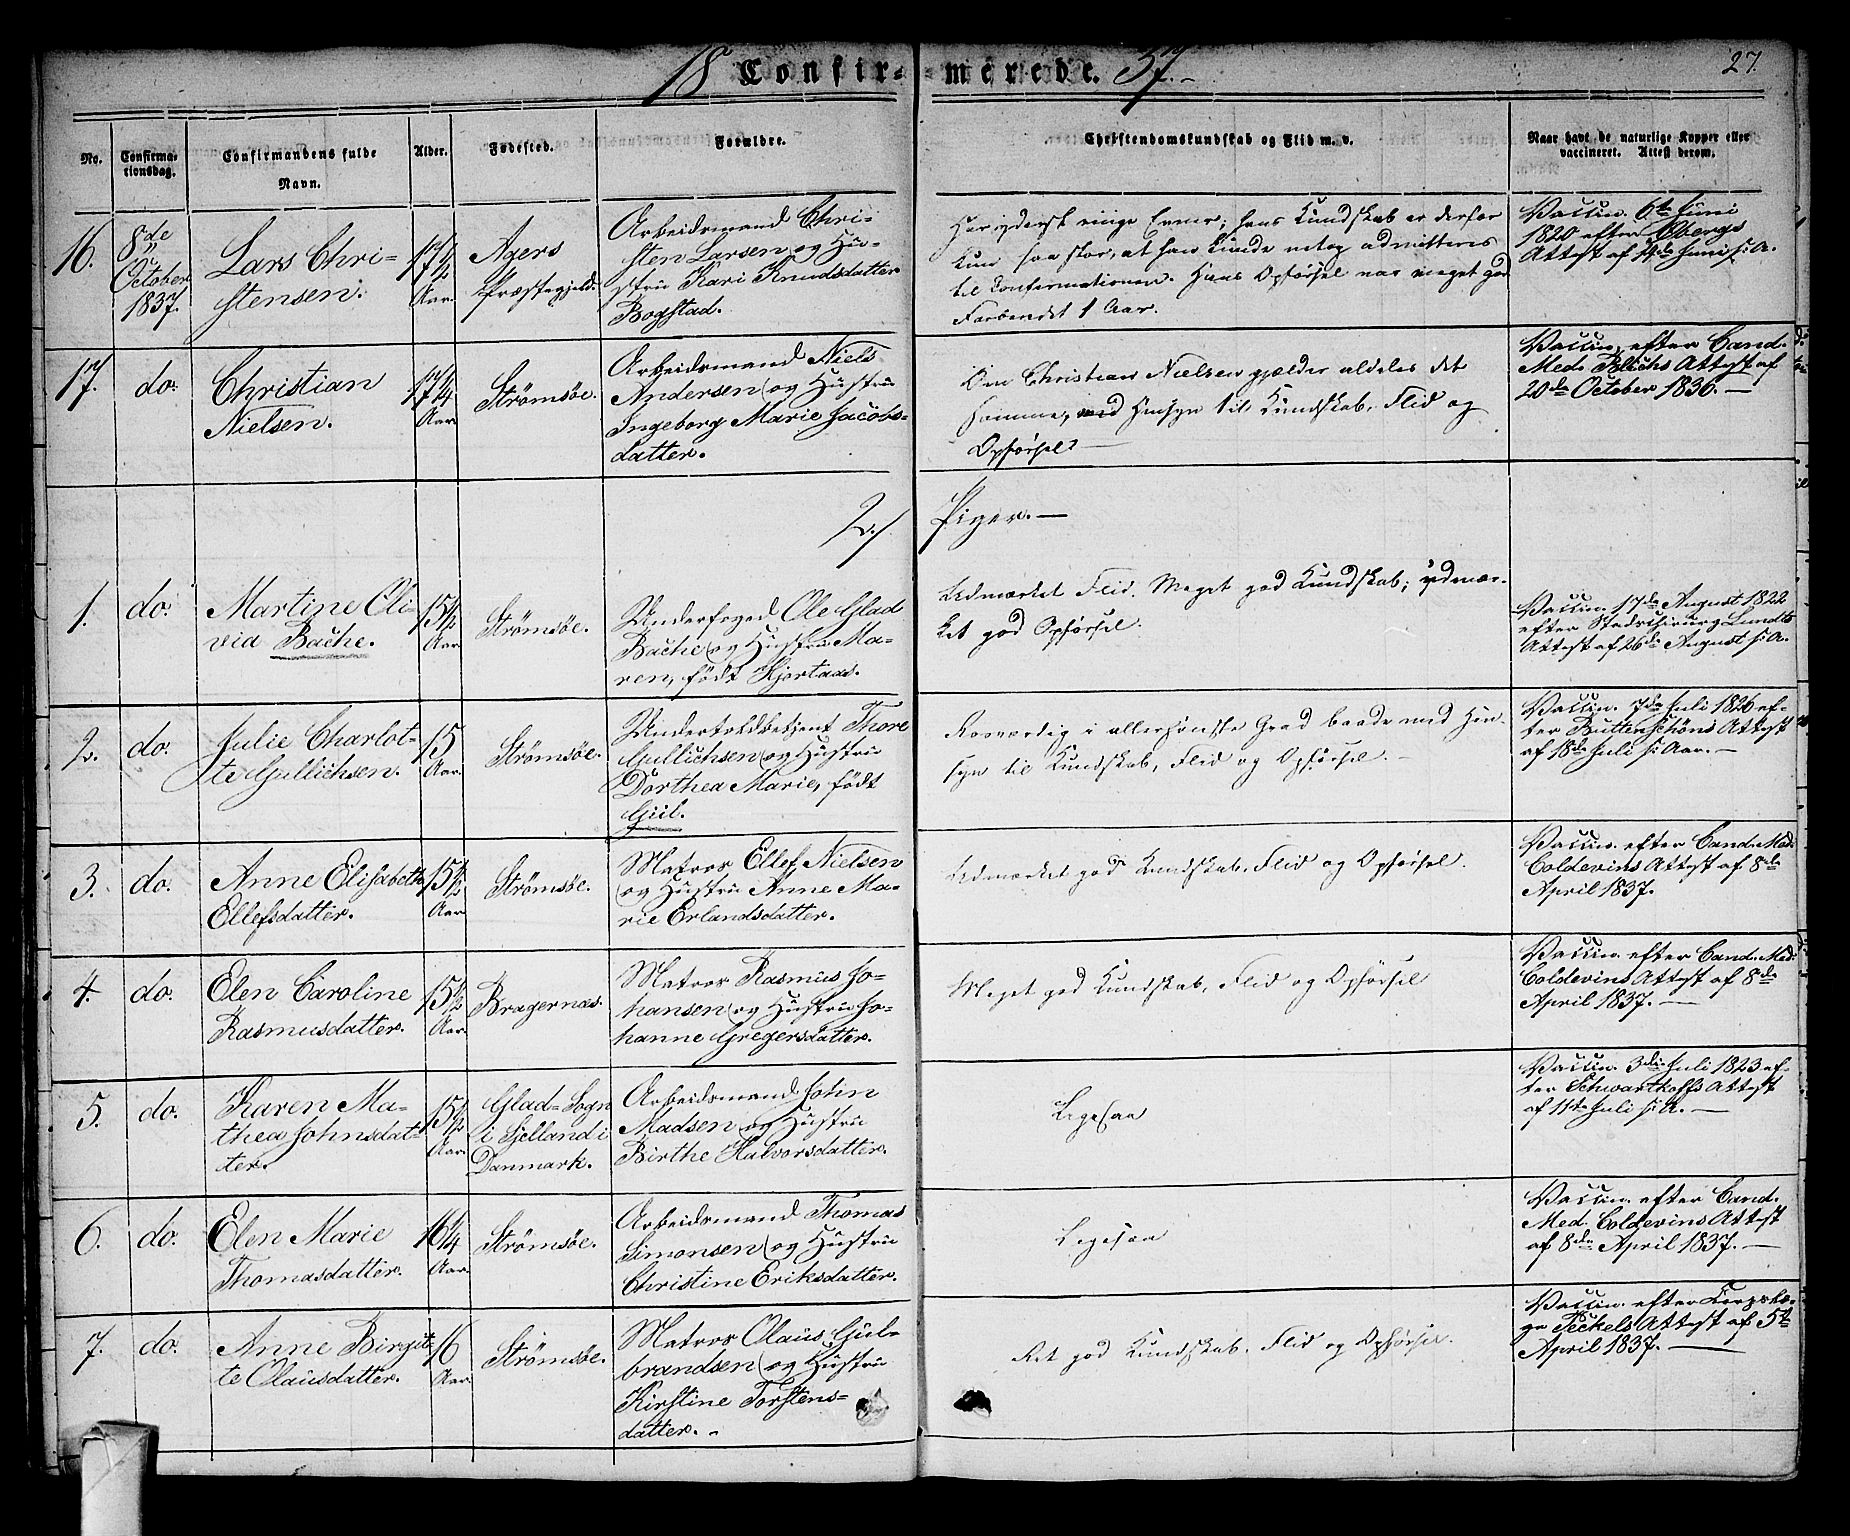 18 Confir- merede. 37.-
27.
No.
Confirma-
tionsdag.
Confirmandens fulde
Navn.
Alder.
Fødested.
Forældre.
Christendomskundskab og Flid m. v.
Naar havt de naturlige Kopper eller
vaccineret. Attest derom.
16.
8de
October
1837.
Lars Chri-
stensen.
17 1/4
Aar.
Agers
Præstegjeld.
Arbeidsmand Chri-
sten Larsen og Hu-
stru Kari Knudsdatter
Bogstad.
Har yderst ringe Evner; hans Kundskab er derfor
kun saa stor, at han kunde netop admitteres
til Confirmationen. Hans Opførsel var meget god
Forberedt 1 Aar.
Vaccin. 6te Juni
1820 efter Obergs
Attest af 14de Juni s. A.
17.
do.
Christian
Nielsen.
17 1/4
Aar
Strømsøe.
Arbeidsmand Niels
Andersen og Hustru
Ingeborg Marie Jacobs-
datter.
Om Christian Nielsen gjelder aldeles det
samme, med Hensyn til Kundskab, Flid og
Opførsel
Vaccin. efter Cand.
Med. Blichs Attest af
20de October 1836. —
2./ Piger. —
1.
do.
Martine Oli-
via Bache.
15 1/2
Aar
Strømsøe.
Underfoged Ole Glad
Bache og Hustru Ma-
ren, født Hjortaas.
Udmærket Flid. Meget god Kundskab; udmær-
ket god Opførsel.
Vaccin. 17de August 1822
efter Stadschirurg Lundts
Attest af 26de August s. A.
2.
do.
Julie Charlot-
te Gullichsen.
15
Aar.
Strømsøe.
Undertoldbetjent Thore
Gullichsen og Hustru
Dorthea Marie, født
Giil.
Rosværdig i allerhøieste Grad baade med Hen-
syn til Kundskab, Flid og Opførsel. —
Vaccin. 7de Juli 1826 ef-
ter Buttenschøns Attest
af 18de Juli s. Aar. —
3.
do.
Anne Elisabeth
Ellefsdatter.
15 1/2
Aar.
Strømsøe.
Matros Ellef Nielsen
og Hustru Anne Ma-
rie Erlandsdatter.
Udmærket god Kundskab, Flid og Opførsel.
Vaccin. efter Cand. Med.
Coldevins Attest af 8de
April 1837.
4.
do.
Elen Caroline
Rasmusdatter.
15 1/2
Aar.
Bragernæs.
Matros Rasmus Jo-
hansen og Hustru Jo-
hanne Gregersdatter.
Meget god Kundskab, Flid og Opførsel
Vaccin. efter Cand. Med.
Coldevins Attest af 8de
April 1837. —
5.
do.
Karen Ma-
thea Johnsdat-
ter.
15 1/2
Aar.
Glad-Sogn
i Sjelland i
Danmark.
Arbeidsmand John
Madsen og Hustru
Birthe Halvorsdatter.
Ligesaa
Vaccin. 3die Juli 1823 ef-
ter Schwartkoffs Attest
af 11te Juli s. A. —
6.
do.
Elen Marie
Thomasdatter.
16 1/4
Aar.
Strømsøe.
Arbeidsmand Thomas
Simonsen og Hustru
Christine Eriksdatter.
Ligesaa
Vaccin. efter Cand.
Med. Coldevins Attest
af 8de April 1837. —
7.
do.
Anne Birgit-
te Olausdatter.
16
Aar.
Strømsøe.
Matros Olaus Gul-
brandsen og Hustru
Kirstine Torstens-
datter. -
Ret god Kundskab, Flid og Opførsel.
Vaccin. efter Korpslæ-
ge Peckels Attest af 5te
April 1837. —